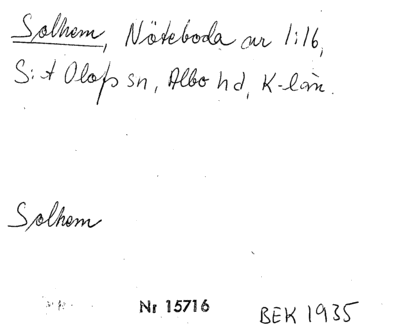 Solhem, Nöteboda av 1:16,
S:t Olofs sn, Albo hd, K-län.
Solhem
Nr 15716 BEK 1935